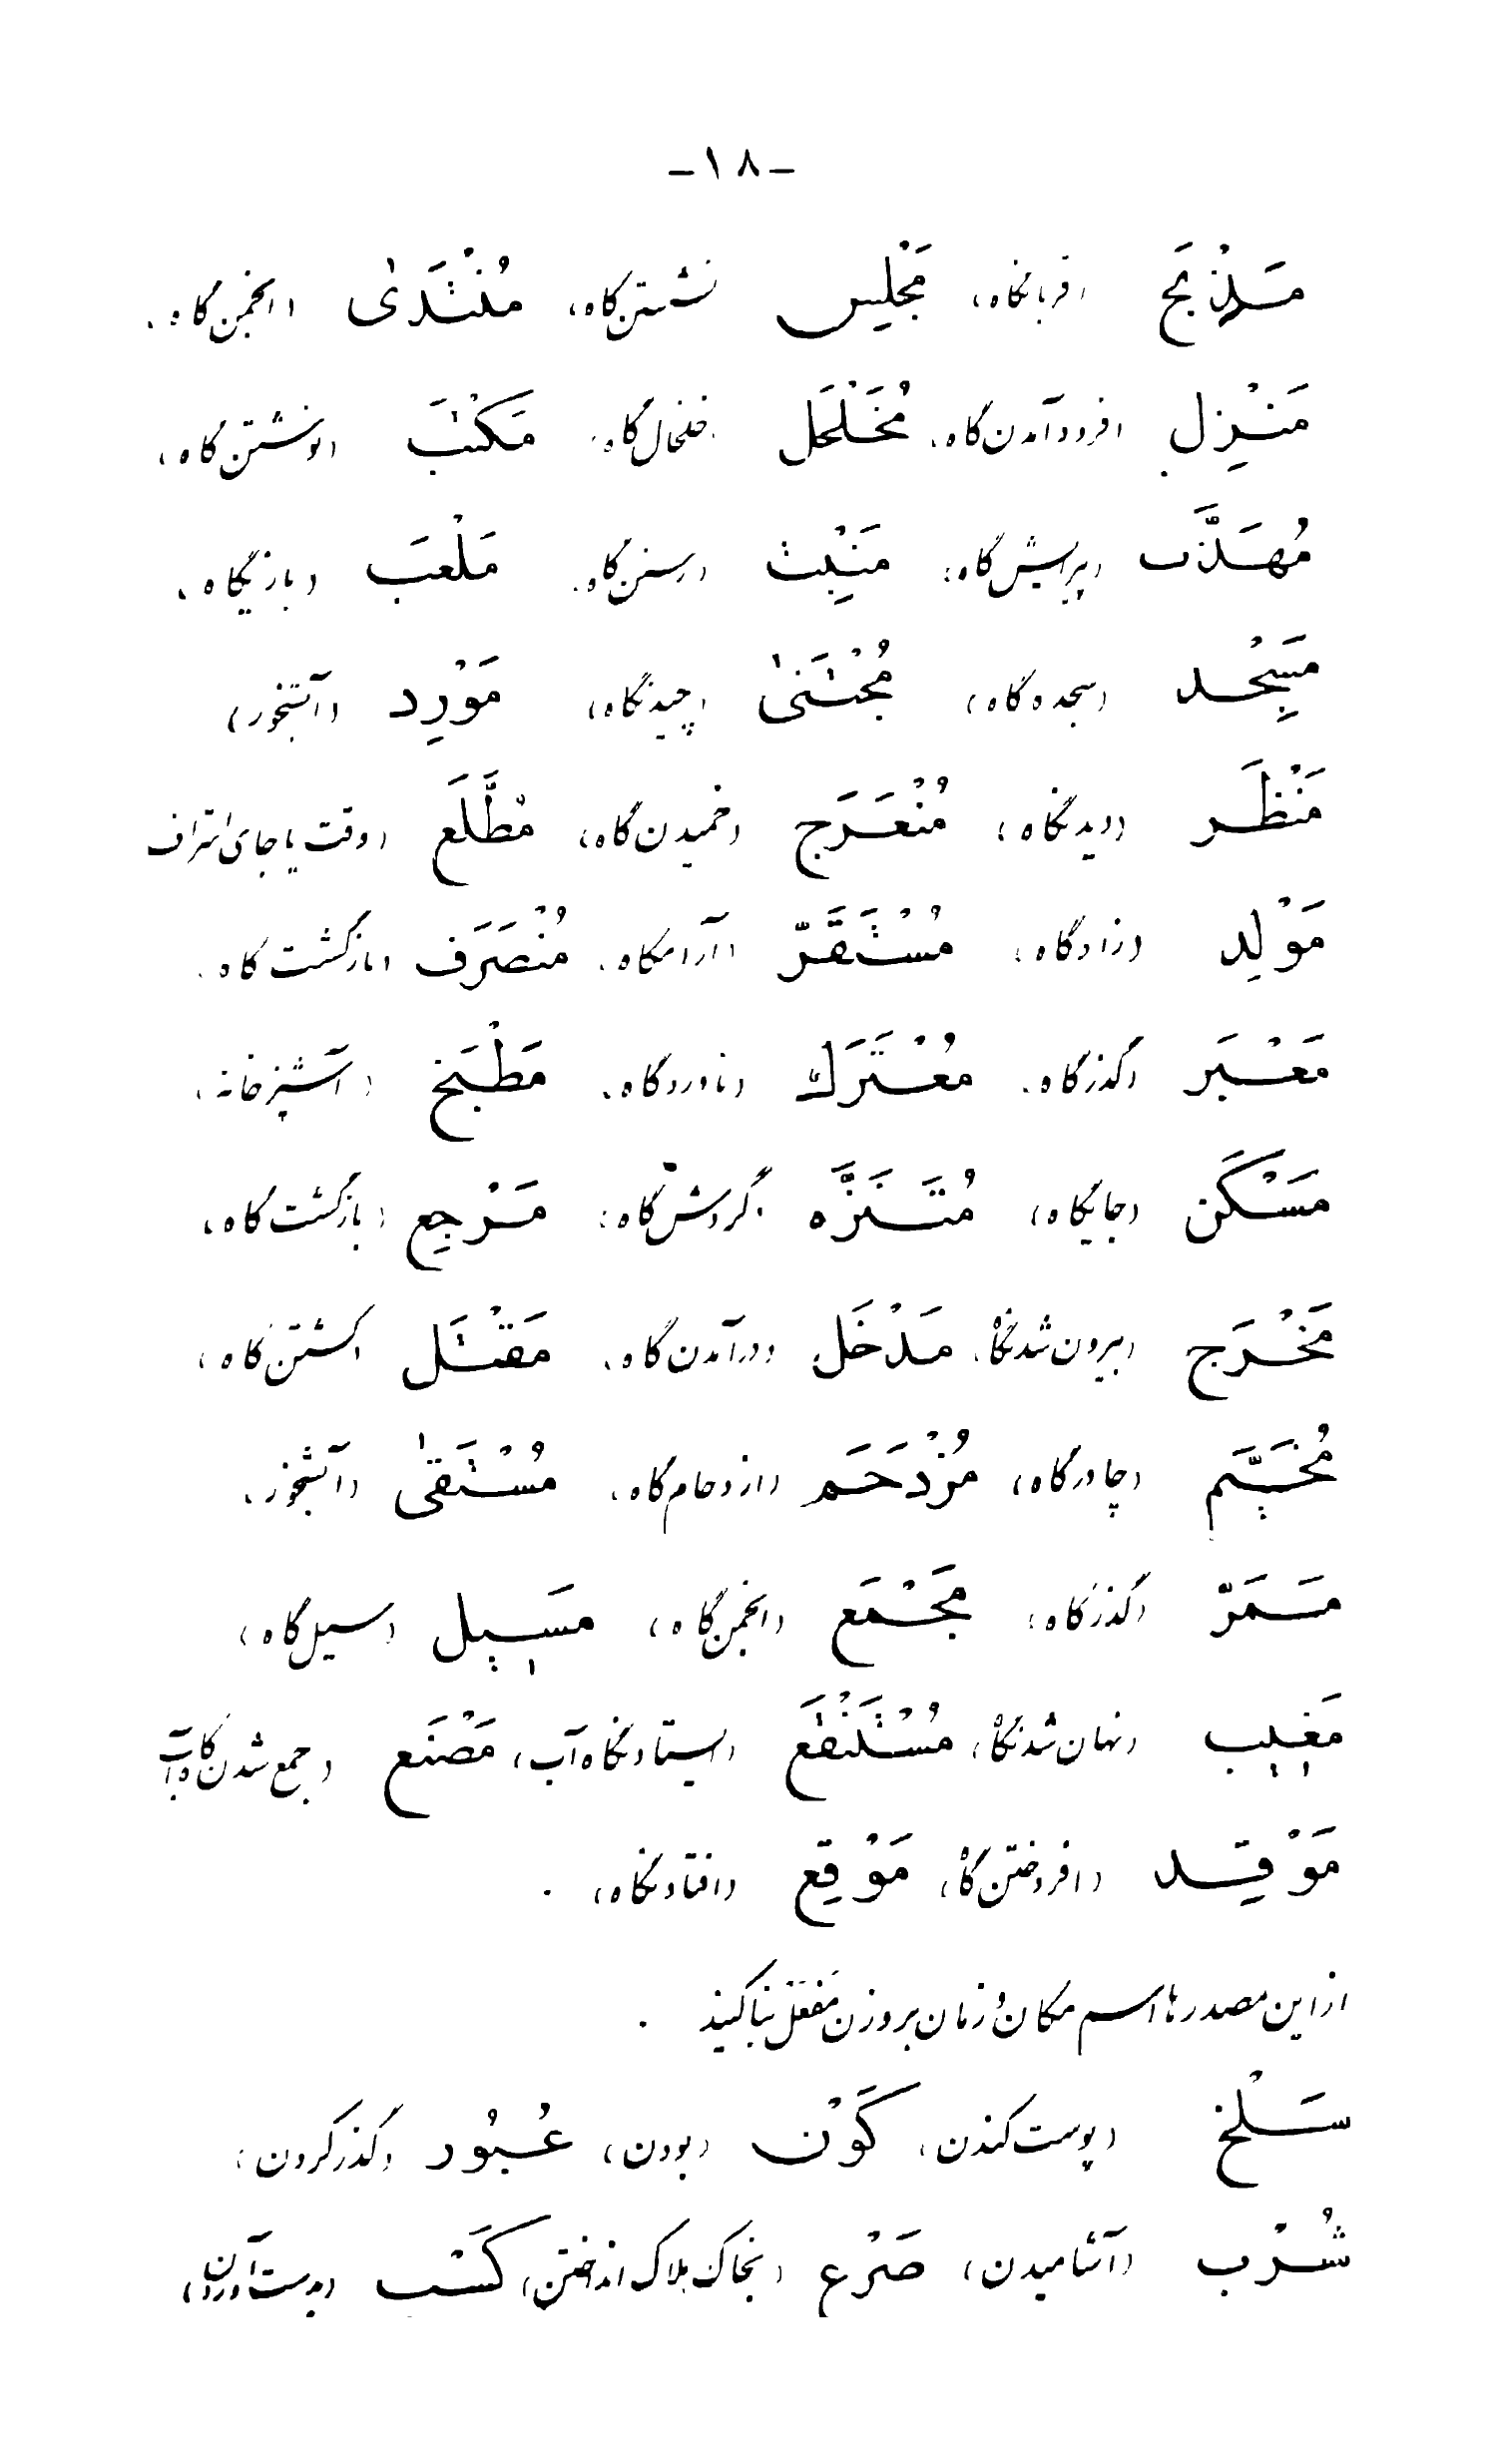 -۱۸-
مَذْبَح (قربانگاه) مَجْلِس (نشستن‌گاه) مُنْتَدَىٰ (انجمن‌گاه).
مَنْزِل (فرودآمدن‌گاه) مُخَلْخَل (خلخال‌گاه) مَكْتَب (نوشتن‌گاه)
مُهَذَّب (پیرایش‌گاه) مَنْبِت (رستن‌گاه) مَلْعَب (بازیگاه)
مَسْجِد (سجده‌گاه) مُجْتَنىٰ (چیدنگاه) مَوْرِد (آبشخور)
مَنْظَر (دیدنگاه) مُنْعَرَج (خمیدن‌گاه) مُطَّلَع (وقت یا جای اشراف
مَوْلِد (زادگاه) مُسْتَقَرّ (آرامگاه) مُنْصَرَف (بازگشت‌گاه)
مَعْبَر (گذرگاه) مُعْتَرَك (ناوردگاه) مَطْبَخ (آشپزخانه)
مَسْكَن (جایگاه) مُتَنَزَّه (گردش‌گاه) مَرْجِع (بازگشت‌گاه)
مَخْرَج (بیرون شدنگاه) مَدْخَل (درآمدن‌گاه) مَقْتَل (کشتن‌گاه)
مُخَيَّم (چادرگاه) مُزْدَحَم (ازدحام‌گاه) مُسْتَقىٰ (آبشخور)
مَمَرّ (گذرگاه) مَجْمَع (انجمن‌گاه) مَسيل (سیل‌گاه)
مَغيب (نهان شدنگاه) مُسْتَنْقَع (ایستادنگاه آب) مَصْنَع (جمع شدن‌گاه آب)
مَوْقِد (افروختن‌گاه) مَوْقِع (افتادنگاه).
از این مصدرها اسم مکان و زمان بر وزن مَفْعَل بنا کنید.
سَلْخ (پوست کندن) كَوْن (بودن) عُبُور (گذر کردن)
شُرْب (آشامیدن) صَرْع (بخاک هلاک انداختن) كَسْب (بدست آوردن)